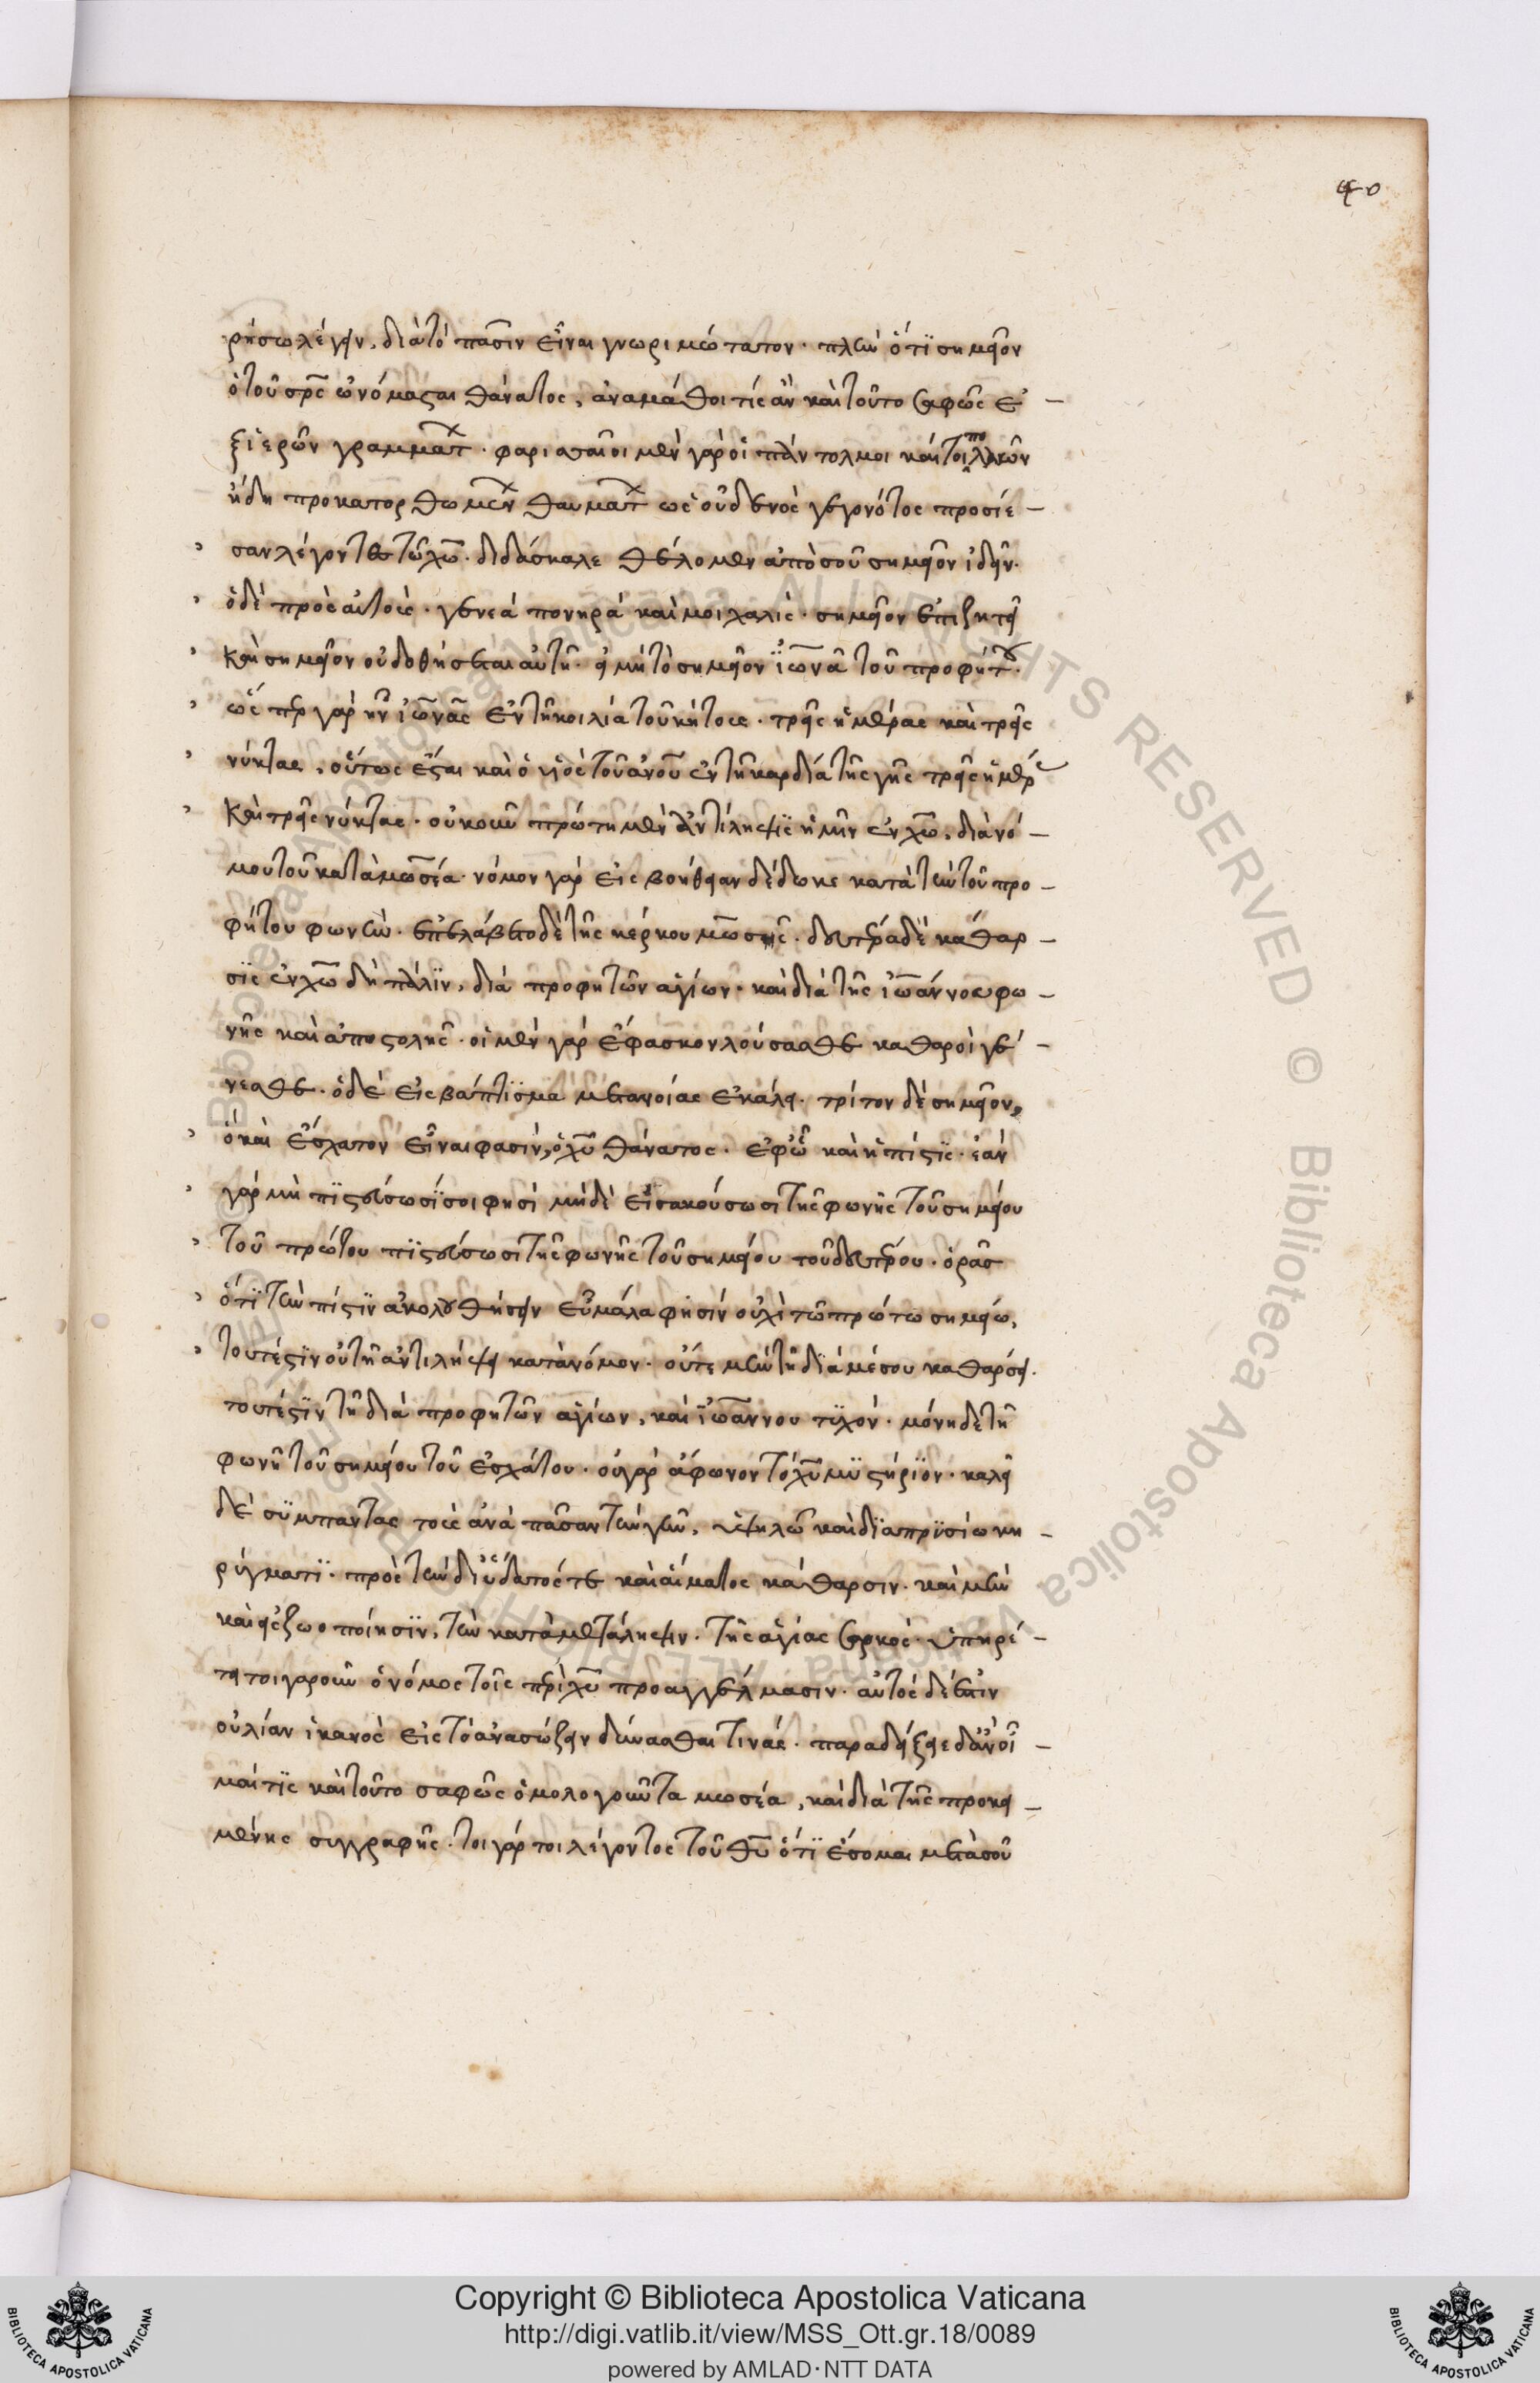 40
ρήσω λέγειν, διὰ τὸ πᾶσιν εἶναι γνωριμώτατον. πλὴν ὅτι σημεῖον
ὁ τοῦ σρ̅ς ὠνόμασται θάνατος, ἀναμάθοι τίς ἂν καὶ τοῦτο σαφῶς ἐ –
ξ ἱερῶν γραμματ. φαρισαῖοι μὲν γὰρ οἱ πάντολμοι καίτοι πολλῶν
ἤδη προκατορθωμεν θαυματ ὡς οὐδενὸς γεγονότος προσίε –
σαν λέγοντες τῶ χω̅. διδάσκαλε θέλομεν ἀπὸ σοῦ σημεῖον ἰδεῖν.
ὁ δὲ πρὸς αὐτοὺς. γενεά πονηρά καὶ μοιχαλὶς. σημεῖον ἐπιζητεῖ
καὶ σημεῖον οὐ δοθήσεται αὐτῆ. εἰ μὴ τὸ σημεῖον ἰωνᾶ τοῦ προφήτου.
ὥσπερ γὰρ ἦν ἰωνᾶς ἐν τῆ κοιλία τοῦ κήτους. τρεῖς ἡμέρας καὶ τρεῖς
νύκτας, οὕτως ἔσται καὶ ὁ υἱὸς τοῦ ἀνου̅ ἐν τῆ καρδία τῆς γῆς τρεῖς ἡμέρ
καὶ τρεῖς νύκτας. οὐκοῦν πρώτη μὲν ἀντίληψις ἡμῖν ἐν χω̅, διὰ νό –
μου τοῦ κατὰ μωσέα. νόμον γὰρ εἰς βοήθειαν δέδωκε κατὰ τὴν τοῦ προ –
φήτου φωνὴν. ἐπελάβετο δὲ τῆς κέρκου μωσῆς. δευτέρα δὲ κάθαρ –
σις ἐν χω̅ δὴ πάλιν, διά προφητῶν ἁγίων. καὶ διὰ τῆς ἰωάννου φω –
νῆς καὶ ἀποστολῆς. οἱ μὲν γὰρ ἔφασκον λούσασθε καθαροὶ γέ –
νεσθε. ὁ δὲ εἰς βάπτισμα μετανοίας ἐκάλει. τρίτον δὲ σημεῖον,
ὃ καὶ ἔσχατον εἶναι φασίν, ὁ χυ̅ θάνατος. ἐφ' ᾧ καὶ ἡ πίστις. ἐάν
γάρ μὴ πιστεύσωσί σοι φησὶ μηδὲ εἰσακούσωσι τῆς φωνῆς τοῦ σημείου
τοῦ πρώτου πιστεύσωσι τῆς φωνῆς τοῦ σημείου τοῦ δευτέρου. ὁρᾶς
ὅτι τὴν πίστιν ἀκολουθήσειν εὖ μάλα φησίν οὐχὶ τῶ πρώτω σημείω,
τουτέστιν οὐ τῆ ἀντιλήψει κατὰ νόμον. οὔτε μὴν τῆ διά μέσου καθάρσει.
τουτέστιν τῆ διὰ προφητῶν ἁγίων, καὶ ἰωάννου τυχόν. μόνη δὲ τῆ
φωνῆ τοῦ σημείου τοῦ ἐσχάτου. οὐ γὰρ ἄφωνον τὸ χυ̅ μυστήριον. καλεῖ
δὲ σύμπαντας τοὺς ἀνὰ πᾶσαν τὴν γῆν, ὑψηλῶ καὶ διαπρυσίω κη –
ρύγματι. πρὸς τὴν δι' ὕδατός τε καὶ αἵματος κάθαρσιν. καὶ μὴν
καὶ εἰς ζωοποίησιν, τὴν κατὰ μετάληψιν. τῆς ἁγίας σαρκὸς. ὑπηρέ –
τει τοιγαροῦν ὁ νόμος τοῖς περὶ χυ̅ προαγγέλμασιν. αὐτός δέ ἐστιν
οὐ λίαν ἱκανὸς εἰς τὸ ἀνασώζειν δύνασθαι τινάς. παραδείξειε δ' ἂν οἶ –
μαί τις καὶ τοῦτο σαφῶς ὁμολογοῦντα μωσέα, καὶ διὰ τῆς προκει –
μένης συγγραφῆς. τοιγάρ τοι λέγοντος τοῦ θυ̅ ὅτι ἔσομαι μετὰ σοῦ
Copyright © Biblioteca Apostolica Vaticana
http://digi.vatlib.it/view/MSS_Ott.gr.18/0089
powered by AMLAD·NTT DATA